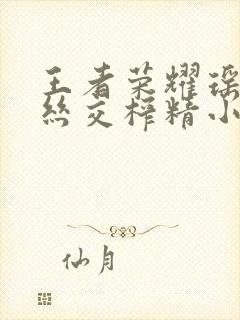 王者荣耀瑶
丝交榨精小
仙月